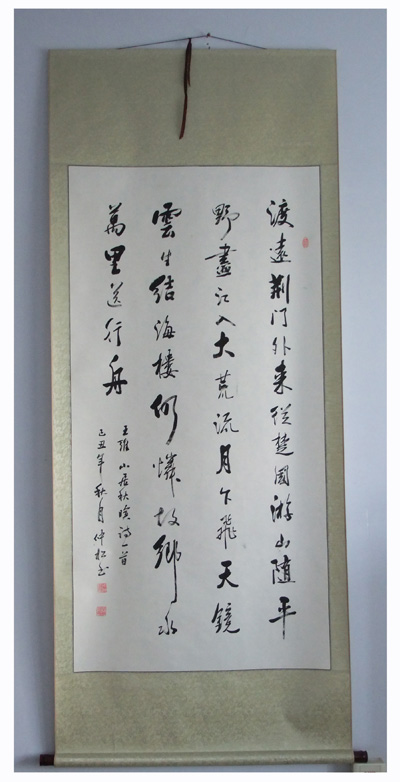 渡遠荆门外来從楚國游山随平
野盡江入大荒流月下飛天鏡
雲生结海樓仍憐故鄉水
萬里送行舟
王維山居秋暝诗一首
己丑年秋月仲松书